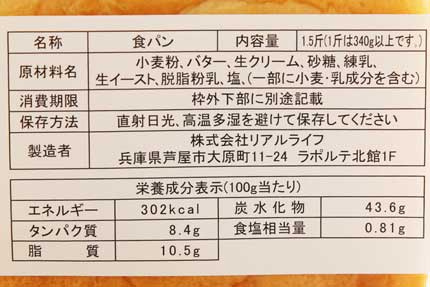 名称 食パン 内容量 1.5斤(1斤は340g以上です。)
原材料名 小麦粉、バター、生クリーム、砂糖、練乳、
生イースト、脱脂粉乳、塩、(一部に小麦・乳成分を含む)
消費期限 枠外下部に別途記載
保存方法 直射日光、高温多湿を避けて保存してください
製造者 株式会社リアルライフ
兵庫県芦屋市大原町11-24 ラポルテ北館1F
栄養成分表示(100g当たり)
エネルギー 302kcal 炭水化物 43.6g
タンパク質 8.4g 食塩相当量 0.81g
脂質 10.5g